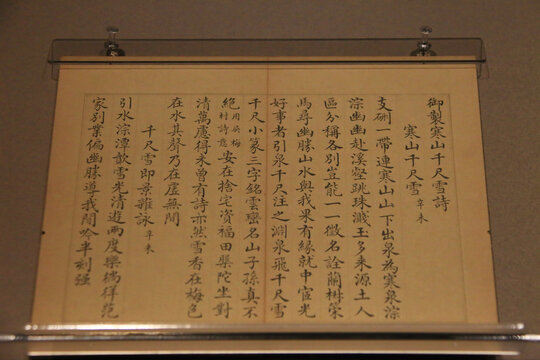 御製寒山千尺雪詩
寒山千尺雪辛未
支硎一帶連寒山山下出泉為寒泉淙
淙幽幽赴溪壑跳珠濺玉多來源土人
區分稱各別豈能一一徵名詮蘭椒宋
馬尋幽勝山水與我果有緣就中宦光
好事者引泉千尺注之淵泉飛千尺雪
千尺小篆三字銘雲巒名山子孫真不
絕用吳梅村詩意安在捨宅資福田槃陀坐對
清萬慮得未曾有詩亦然雪香在梅色
在水其聲乃在虛無間
千尺雪即景雜詠辛未
引水淙潭歕雪光清遊兩度樂徜徉范
家別業偏幽勝導我閒吟半刻強